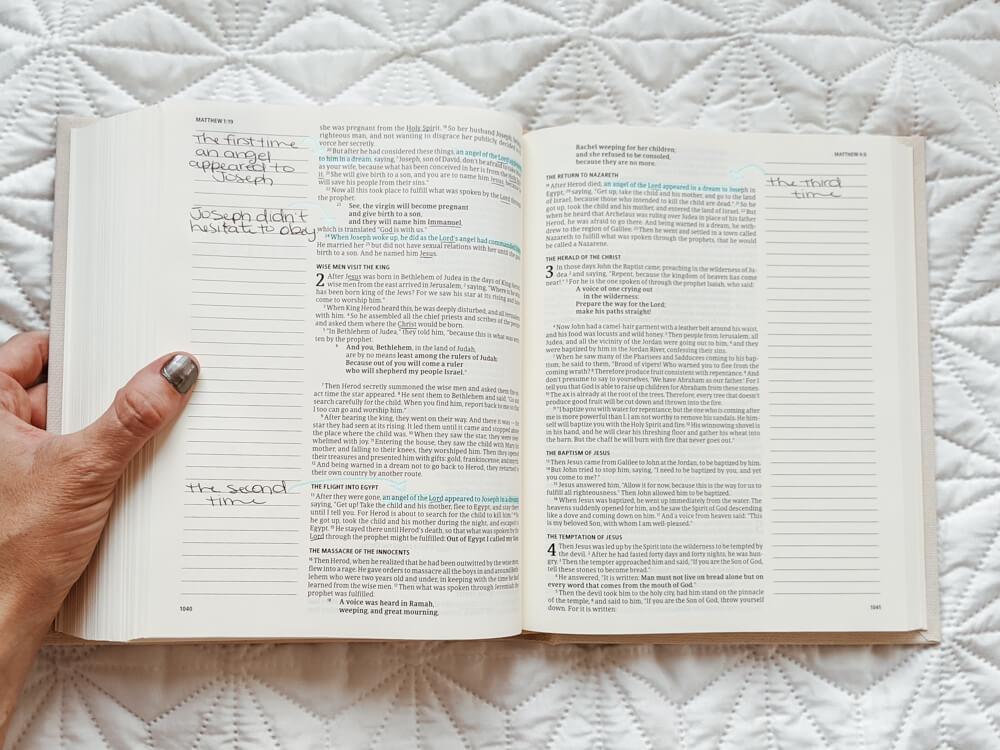 MATTHEW 1:19
The first time
an angel
appeared to
Joseph
Joseph didn't
hesitate to obey
the second
time
1040
she was pregnant from the Holy Spirit. 19 So her husband Joseph, being a
righteous man, and not wanting to disgrace her publicly, decided to
vorce her secretly.
20 But after he had considered these things, an angel of the Lord appeared
to him in a dream, saying, "Joseph, son of David, don't be afraid to take
as your wife, because what has been conceived in her is from the Holy
it. 21 She will give birth to a son, and you are to name him Jesus, because
will save his people from their sins."
22 Now all this took place to fulfill what was spoken by the Lord through
the prophet:
23 See, the virgin will become pregnant
and give birth to a son,
and they will name him Immanuel,
which is translated "God is with us."
24 When Joseph woke up, he did as the Lord's angel had commanded
He married her 25 but did not have sexual relations with her until she gave
birth to a son. And he named him Jesus.
WISE MEN VISIT THE KING
2 After Jesus was born in Bethlehem of Judea in the days of King Herod,
wise men from the east arrived in Jerusalem, 2 saying, "Where is he who
has been born king of the Jews? For we saw his star at its rising and have
come to worship him."
3 When King Herod heard this, he was deeply disturbed, and all Jerusalem
with him. 4 So he assembled all the chief priests and scribes of the people
and asked them where the Christ would be born.
5 "In Bethlehem of Judea," they told him, "because this is what was writ-
ten by the prophet:
6 And you, Bethlehem, in the land of Judah,
are by no means least among the rulers of Judah:
Because out of you will come a ruler
who will shepherd my people Israel."
7 Then Herod secretly summoned the wise men and asked them the ex-
act time the star appeared. 8 He sent them to Bethlehem and said, "Go and
search carefully for the child. When you find him, report back to me so that
I too can go and worship him."
9 After hearing the king, they went on their way. And there it was — the
star they had seen at its rising. It led them until it came and stopped above
the place where the child was. 10 When they saw the star, they were over-
whelmed with joy. 11 Entering the house, they saw the child with Mary his
mother, and falling to their knees, they worshiped him. Then they opened
their treasures and presented him with gifts: gold, frankincense, and myrrh.
12 And being warned in a dream not to go back to Herod, they returned to
their own country by another route.
THE FLIGHT INTO EGYPT
13 After they were gone, an angel of the Lord appeared to Joseph in a dream,
saying, "Get up! Take the child and his mother, flee to Egypt, and stay there
until I tell you. For Herod is about to search for the child to kill him." 14 So
he got up, took the child and his mother during the night, and escaped to
Egypt. 15 He stayed there until Herod's death, so that what was spoken by the
Lord through the prophet might be fulfilled: Out of Egypt I called my Son.
THE MASSACRE OF THE INNOCENTS
16 Then Herod, when he realized that he had been outwitted by the wise men,
flew into a rage. He gave orders to massacre all the boys in and around Beth-
lehem who were two years old and under, in keeping with the time he had
learned from the wise men. 17 Then what was spoken through Jeremiah the
prophet was fulfilled:
18 A voice was heard in Ramah,
weeping, and great mourning,
Rachel weeping for her children;
and she refused to be consoled,
because they are no more.
THE RETURN TO NAZARETH
19 After Herod died, an angel of the Lord appeared in a dream to Joseph in
Egypt, 20 saying, "Get up, take the child and his mother, and go to the land
of Israel, because those who intended to kill the child are dead." 21 So he
got up, took the child and his mother, and entered the land of Israel. 22 But
when he heard that Archelaus was ruling over Judea in place of his father
Herod, he was afraid to go there. And being warned in a dream, he with-
drew to the region of Galilee. 23 Then he went and settled in a town called
Nazareth to fulfill what was spoken through the prophets, that he would
be called a Nazarene.
THE HERALD OF THE CHRIST
3 In those days John the Baptist came, preaching in the wilderness of Ju-
dea 2 and saying, "Repent, because the kingdom of heaven has come
near!" 3 For he is the one spoken of through the prophet Isaiah, who said:
A voice of one crying out
in the wilderness:
Prepare the way for the Lord;
make his paths straight!
4 Now John had a camel-hair garment with a leather belt around his waist,
and his food was locusts and wild honey. 5 Then people from Jerusalem, all
Judea, and all the vicinity of the Jordan were going out to him, 6 and they
were baptized by him in the Jordan River, confessing their sins.
7 When he saw many of the Pharisees and Sadducees coming to his bap-
tism, he said to them, "Brood of vipers! Who warned you to flee from the
coming wrath? 8 Therefore produce fruit consistent with repentance. 9 And
don't presume to say to yourselves, 'We have Abraham as our father.' For I
tell you that God is able to raise up children for Abraham from these stones.
10 The ax is already at the root of the trees. Therefore, every tree that doesn't
produce good fruit will be cut down and thrown into the fire.
11 "I baptize you with water for repentance, but the one who is coming after
me is more powerful than I. I am not worthy to remove his sandals. He him-
self will baptize you with the Holy Spirit and fire. 12 His winnowing shovel is
in his hand, and he will clear his threshing floor and gather his wheat into
the barn. But the chaff he will burn with fire that never goes out."
THE BAPTISM OF JESUS
13 Then Jesus came from Galilee to John at the Jordan, to be baptized by him.
14 But John tried to stop him, saying, "I need to be baptized by you, and yet
you come to me?"
15 Jesus answered him, "Allow it for now, because this is the way for us to
fulfill all righteousness." Then John allowed him to be baptized.
16 When Jesus was baptized, he went up immediately from the water. The
heavens suddenly opened for him, and he saw the Spirit of God descending
like a dove and coming down on him. 17 And a voice from heaven said: "This
is my beloved Son, with whom I am well-pleased."
THE TEMPTATION OF JESUS
4 Then Jesus was led up by the Spirit into the wilderness to be tempted by
the devil. 2 After he had fasted forty days and forty nights, he was hun-
gry. 3 Then the tempter approached him and said, "If you are the Son of God,
tell these stones to become bread."
4 He answered, "It is written: Man must not live on bread alone but on
every word that comes from the mouth of God."
5 Then the devil took him to the holy city, had him stand on the pinnacle
of the temple, 6 and said to him, "If you are the Son of God, throw yourself
down. For it is written:
MATTHEW 4:6
the third
time
1041